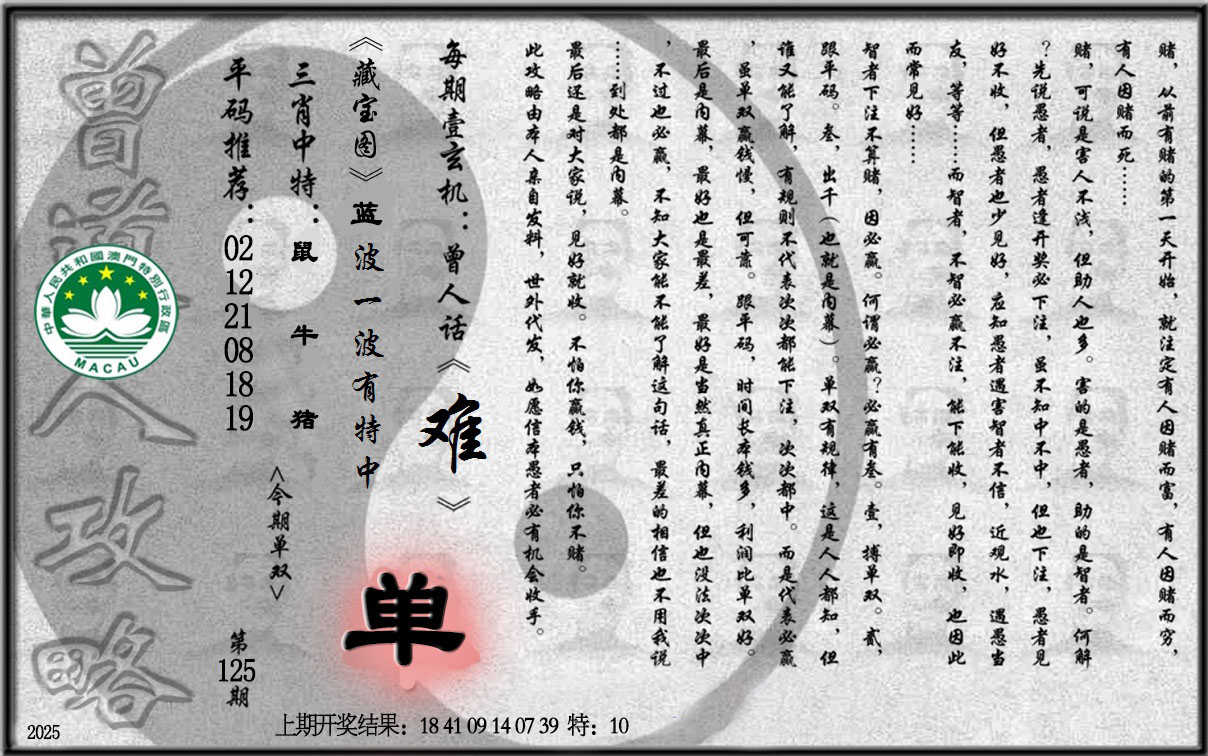 赌，从前有赌的第一天开始，就注定有人因赌而富，有人因赌而穷，
有人因赌而死……
赌，可说是害人不浅，但助人也多。害的是愚者，助的是智者。何解
？先说愚者，愚者逢开奖必下注，虽不知中不中，但也下注，愚者见
好不收，但愚者也少见好，应知愚者遇害智者不信，近观水，遇愚当
友，等等……而智者，不智必赢不注，能下能收，见好即收，也因此
而常见好……
智者下注不算赌，因必赢。何谓必赢？必赢有叁。壹，搏单双。贰，
跟平码。叁，出千（也就是内幕）。单双有规律，这是人人都知，但
谁又能了解，有规则不代表次次都能下注，次次都中。而是代表必赢
，虽单双赢钱慢，但可靠。跟平码，时间长本钱多，利润比单双好。
最后是内幕，最好也是最差，最好是当然真正内幕，但也没法次次中
，不过也必赢，不知大家能不能了解这句话，最差的相信也不用我说
……到处都是内幕。
最后还是对大家说，见好就收。不怕你赢钱，只怕你不赌。
此攻略由本人亲自发料，世外代发，如愿信本愚者必有机会收手。
每期壹玄机：曾人话《难》
《藏宝图》蓝波一波有特中
单
三肖中特：鼠 牛 猪
<今期单双>
平码推荐：02 12 21 08 18 19
第125期
曾道人攻略
中華人民共和國澳門特別行政區
MACAU
上期开奖结果：18 41 09 14 07 39 特：10
2025